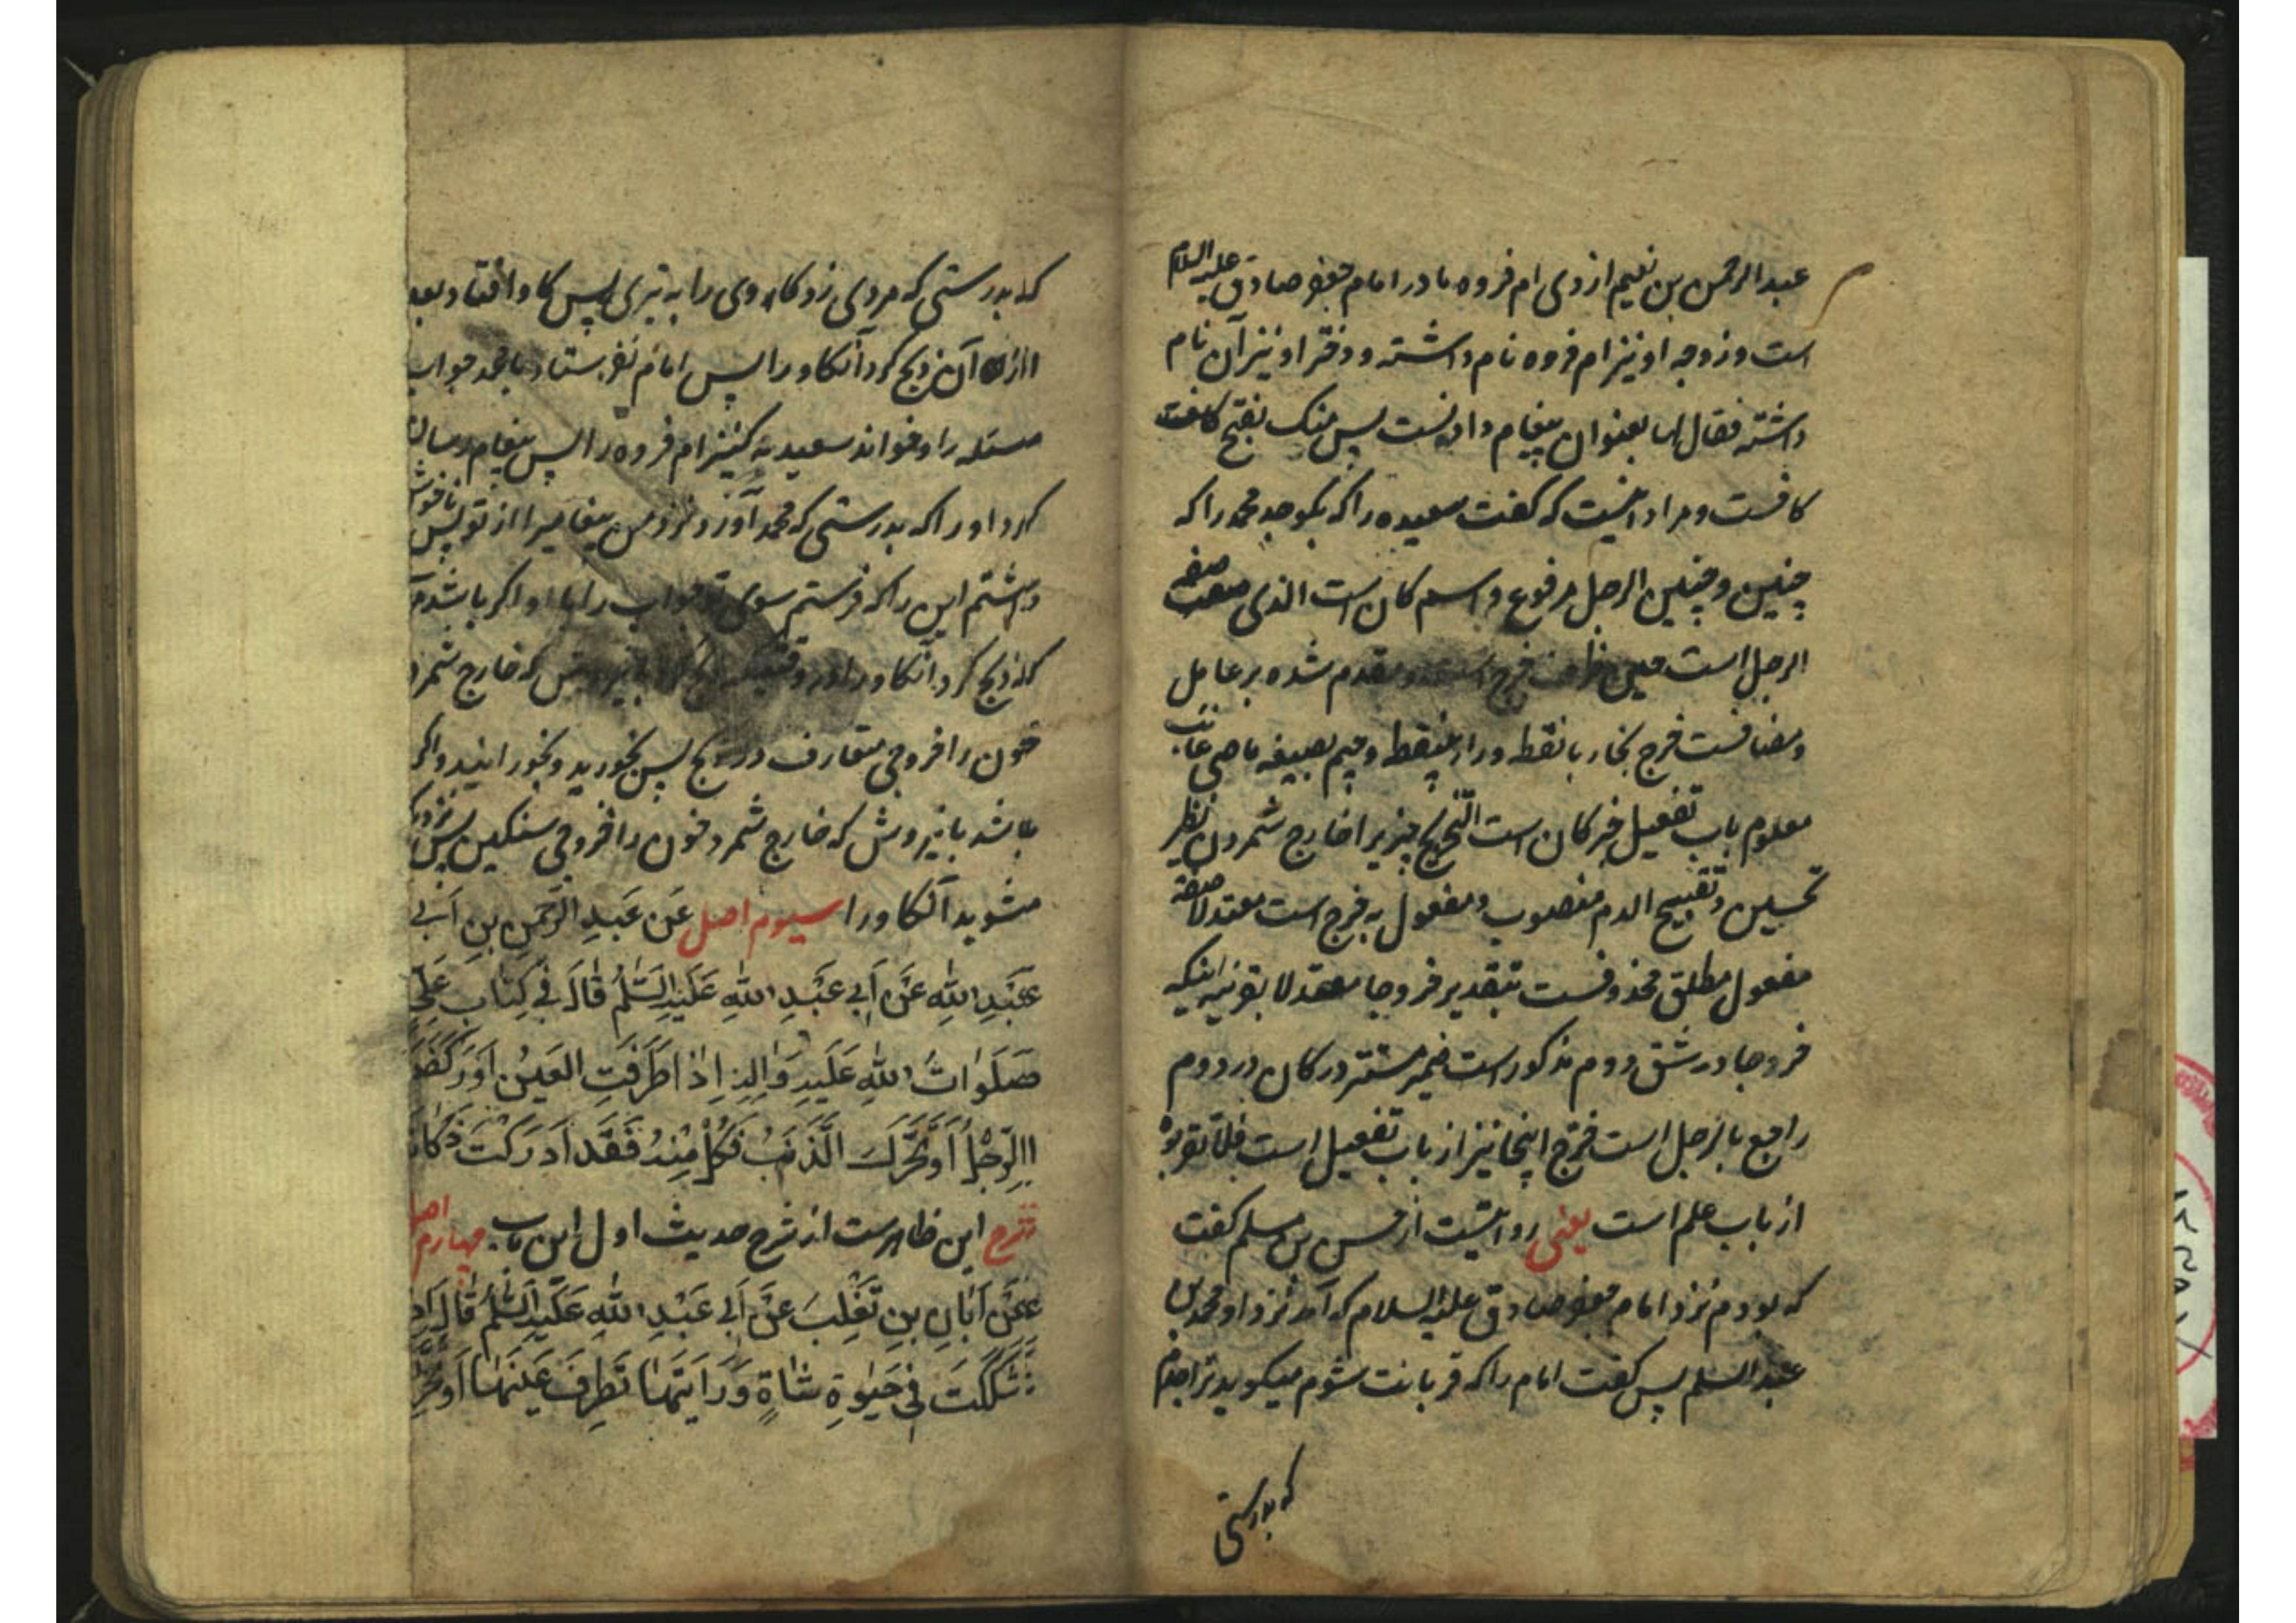 عبد الرحمن بن نعیم ازدی ام فروه مادر امام جعفر صادق علیه السلام
است و زوجه او نیز ام فروه نام داشته و دختر او نیز آن نام
داشته فقال لها بعنوان پیغام دادنست پس منک بفتح کاف
کافست و مراد اینست که گفت سعیده را که بکو جد محمد را که
چنین و چنین الرجل مرفوع و اسم کان است الذی صفه
الرجل است حین ظرف فرج است و مقدم شده بر عامل
و مضافست فرج بخاء با نقطه و راء بینقطه و جیم بصیغه ماضی غایب
معلوم باب تفعیل خبر کان است التخریج چیزیرا خارج شمردن نظیر
تحسین و تقبیح الدم منصوب و مفعول به خرج است معتدلا صفة
مفعول مطلق محذوفست بتقدیر خروجا معتدلا بقرینه اینکه
خروجا در شق دوم مذکور است ضمیر مستتر در کان در دوم
راجع بالرجل است خرج اینجا نیز از باب تفعیل است فلا تقربوه
از باب علم است یعنی روایتست از حسن بن مسلم گفت
که بودم نزد امام جعفر صادق علیه السلام که آمد نزد او محمد بن
عبد السلم پس گفت امام را که قربانت شوم میکوید ترا جدم
که بدرستی
که بدرستی که مردی زد کاوی را به تبری پس کاو افتاد بعد
از آن ذبح کرد آن کاو را پس امام نفرستاد با محمد جواب
مسئله را و خواند سعیده کنیز ام فروه را پس پیغام رسان
کرد او را که بدرستی که محمد آورد نزد من پیغامیرا از تو پس ناخوش
داشتم این را که فرستم سوی تو جواب را با او اگر باشد
که ذبح کرد آن کاو را در وقت که خارج شمرد
خون را خروجی متعارف در ذبح پس بخورید و بخورانید و اگر
باشد با نیروش که خارج شمرد خون را خروجی سنکین پس نزدیک
مشوید آن کاو را سیوم اصل عَن عَبدِ الرَّحمنِ بنِ اَبی
عَبدِ اللهِ عَن اَبی عَبدِ اللهِ عَلَیهِ السَّلمُ قالَ فی کِتابِ عَلیٍّ
صَلَواتُ اللهِ عَلَیهِ وَالِهِ اِذا طَرَفَتِ العَینُ اَو رَکَضَتِ
الرِّجلُ اَو تَحَرَّکَ الذَّنَبُ فَکُل مِنهُ فَقَد اَدرَکتَ ذَکاتَهُ
شرح این ظاهرست از شرح حدیث اول این باب چهارم اصل
عَن اَبانِ بنِ تَغلِبَ عَن اَبی عَبدِ اللهِ عَلَیهِ السَّلمُ قالَ اِذا
شَکَکتَ فی حَیٰوةِ شاةٍ وَ رَاَیتَها تَطرِفُ عَینَها اَو تُحَرِّکُ